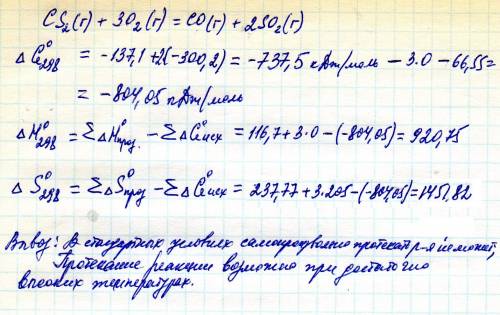 CS₂(г) + 3O₂(г) = CO(г) + 2SO₂(г)
ΔG°₂₉₈ = -137,1 + 2(-300,2) = -737,5 кДж/моль - 3.0 - 66,55 =
= -804,05 кДж/моль
ΔH°₂₉₈ = ΣΔH°прод. - ΣΔG°исх = 116,7 + 3.0 - (-804,05) = 920,75
ΔS°₂₉₈ = ΣΔS°прод - ΣΔG°исх = 237,77 + 3.205 - (-804,05) = 1451,82
Вывод: В стандартных условиях самопроизвольно протекать р-я не может,
Протекание реакции возможно при достаточно
высоких температурах.